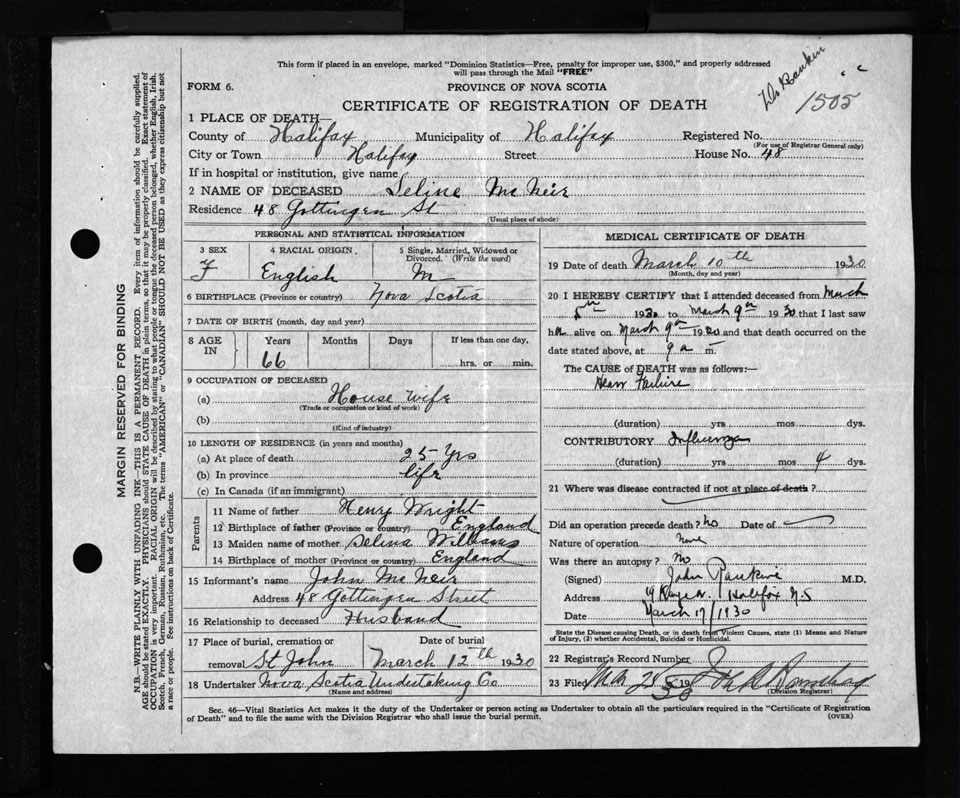 This form if placed in an envelope, marked "Dominion Statistics—Free, penalty for improper use, $300," and properly addressed
will pass through the Mail "FREE"
Dr Rankin
" "
1505
FORM 6.
PROVINCE OF NOVA SCOTIA
CERTIFICATE OF REGISTRATION OF DEATH
1 PLACE OF DEATH—
County of Halifax Municipality of Halifax Registered No.
(For use of Registrar General only)
City or Town Halifax Street House No. 48
If in hospital or institution, give name
2 NAME OF DECEASED Seline McNeir
Residence 48 Gottingen St
(Usual place of abode)
PERSONAL AND STATISTICAL INFORMATION
3 SEX
F
4 RACIAL ORIGIN
English
5 Single, Married, Widowed or
Divorced. (Write the word)
M
6 BIRTHPLACE (Province or country) Nova Scotia
7 DATE OF BIRTH (month, day and year)
8 AGE
IN
Years Months Days If less than one day,
66
hrs. or min.
9 OCCUPATION OF DECEASED
(a) House wife
(Trade or occupation or kind of work)
(b)
(Kind of industry)
10 LENGTH OF RESIDENCE (in years and months)
(a) At place of death 25 Yrs
(b) In province life
(c) In Canada (if an immigrant)
Parents
11 Name of father Henry Wright
12 Birthplace of father (Province or country) England
13 Maiden name of mother Selina Williams
14 Birthplace of mother (Province or country) England
15 Informant's name John McNeir
Address 48 Gottingen Street
16 Relationship to deceased Husband
17 Place of burial, cremation or
removal St John
Date of burial
March 12th 1930
18 Undertaker Nova Scotia Undertaking Co
(Name and address)
MEDICAL CERTIFICATE OF DEATH
19 Date of death March 10th 1930
(Month, day and year)
20 I HEREBY CERTIFY that I attended deceased from March
5th 1930 to March 9th 1930 that I last saw
her alive on March 9th 1930 and that death occurred on the
date stated above, at 9 a m.
The CAUSE of DEATH was as follows:—
Heart Failure
(duration) yrs mos dys.
CONTRIBUTORY Influenza
(duration) yrs mos 4 dys.
21 Where was disease contracted if not at place of death?
Did an operation precede death? No Date of
Nature of operation None
Was there an autopsy? No
(Signed) John Rankine M.D.
Address Halifax N.S
Date March 17/1930
State the Disease causing Death, or in death from Violent Causes, state (1) Means and Nature
of Injury, (2) whether Accidental, Suicidal or Homicidal.
22 Registrar's Record Number
23 Filed 19
(Division Registrar)
Sec. 46—Vital Statistics Act makes it the duty of the Undertaker or person acting as Undertaker to obtain all the particulars required in the "Certificate of Registration
of Death" and to file the same with the Division Registrar who shall issue the burial permit.
(OVER)
MARGIN RESERVED FOR BINDING
N.B.—WRITE PLAINLY WITH UNFADING INK—THIS IS A PERMANENT RECORD. Every item of information should be carefully supplied.
AGE should be stated EXACTLY. PHYSICIANS should STATE CAUSE OF DEATH in plain terms, so that it may be properly classified. Exact statement of
OCCUPATION is very important. RACIAL ORIGIN will be described by stating to what people or tongue the deceased person belonged, whether English, Irish,
Scotch, French, German, Russian, Ruthenian, etc. The terms "AMERICAN" or "CANADIAN" SHOULD NOT BE USED as they express citizenship but not
a race or people. See instructions on back of Certificate.